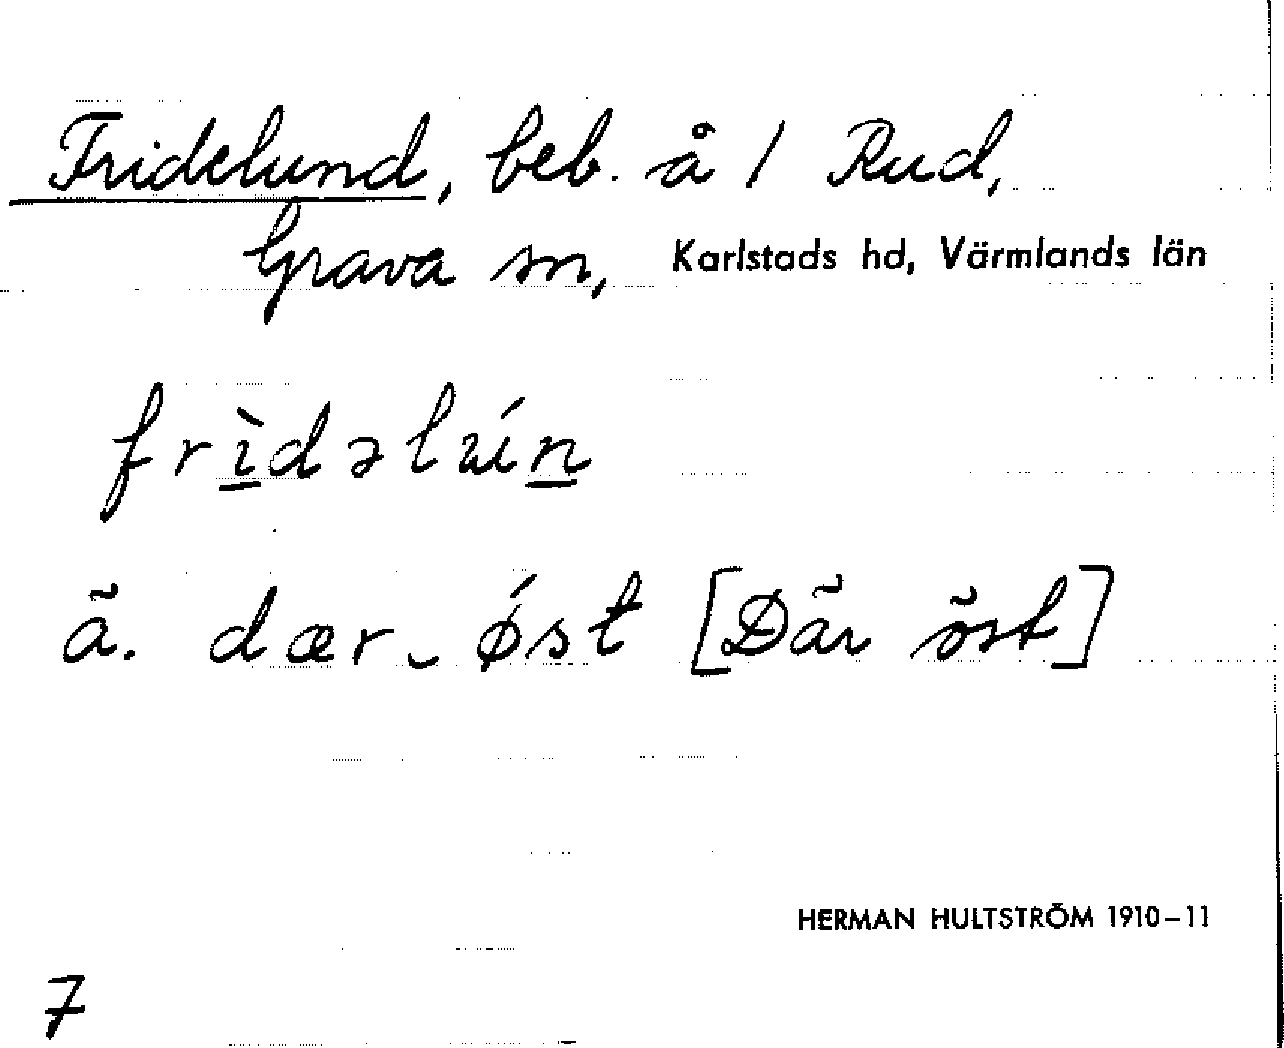 Fridelund, beb. å 1 Rud,
Grava sn, Karlstads hd, Värmlands län
frìdəlɯ́n
ä. dær‿ǿst [Där öst]
HERMAN HULTSTRÖM 1910–11
7